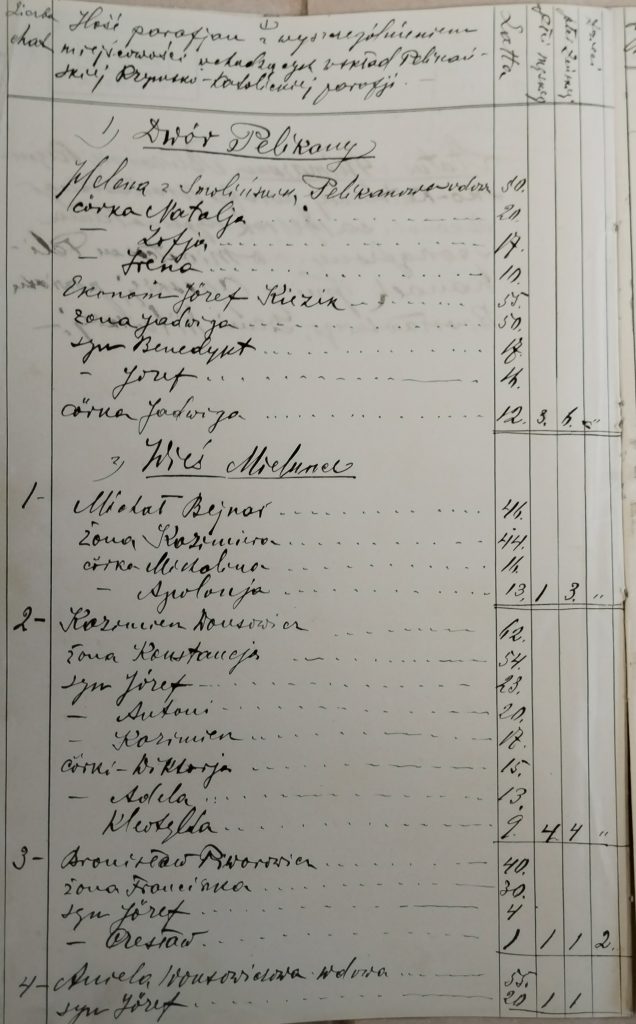 Liczba chat
Ilość parafjan z wyszczególnieniem
miejscowości wchodzących w skład Pelikań-
skiej Rzymsko-Katolickiej parafji.
Latta
płci męskiej
płci żeńskiej
dzieci
1) Dwór Pelikany
Helena z Pelikanowa wdowa 50.
córka Natalja 20.
— Zofja 17.
— Irena 10.
Ekonom Józef Kiezik 55.
żona Jadwiga 50.
syn Benedykt 17.
— Józef 16.
córka Jadwiga 12. 3. 6. "
2) Wieś Mielunce
1- Michał Bejnar 46.
żona Kazimiera 44.
córka Michalina 16.
— Apolonja 13. 1 3. "
2- Kazimierz Wonsowicz 62.
żona Konstancja 54.
syn Józef 23.
— Antoni 20.
— Kazimierz 17.
córki - Wiktorja 15.
— Adela 13.
Kleotylda 9. 4 4 "
3- Bronisław Piworowicz 40.
żona Franciszka 30.
syn Józef 4
— Czesław 1 1 1 2.
4- Aniela Wonsowiczowa wdowa 55.
syn Józef 20 1 1